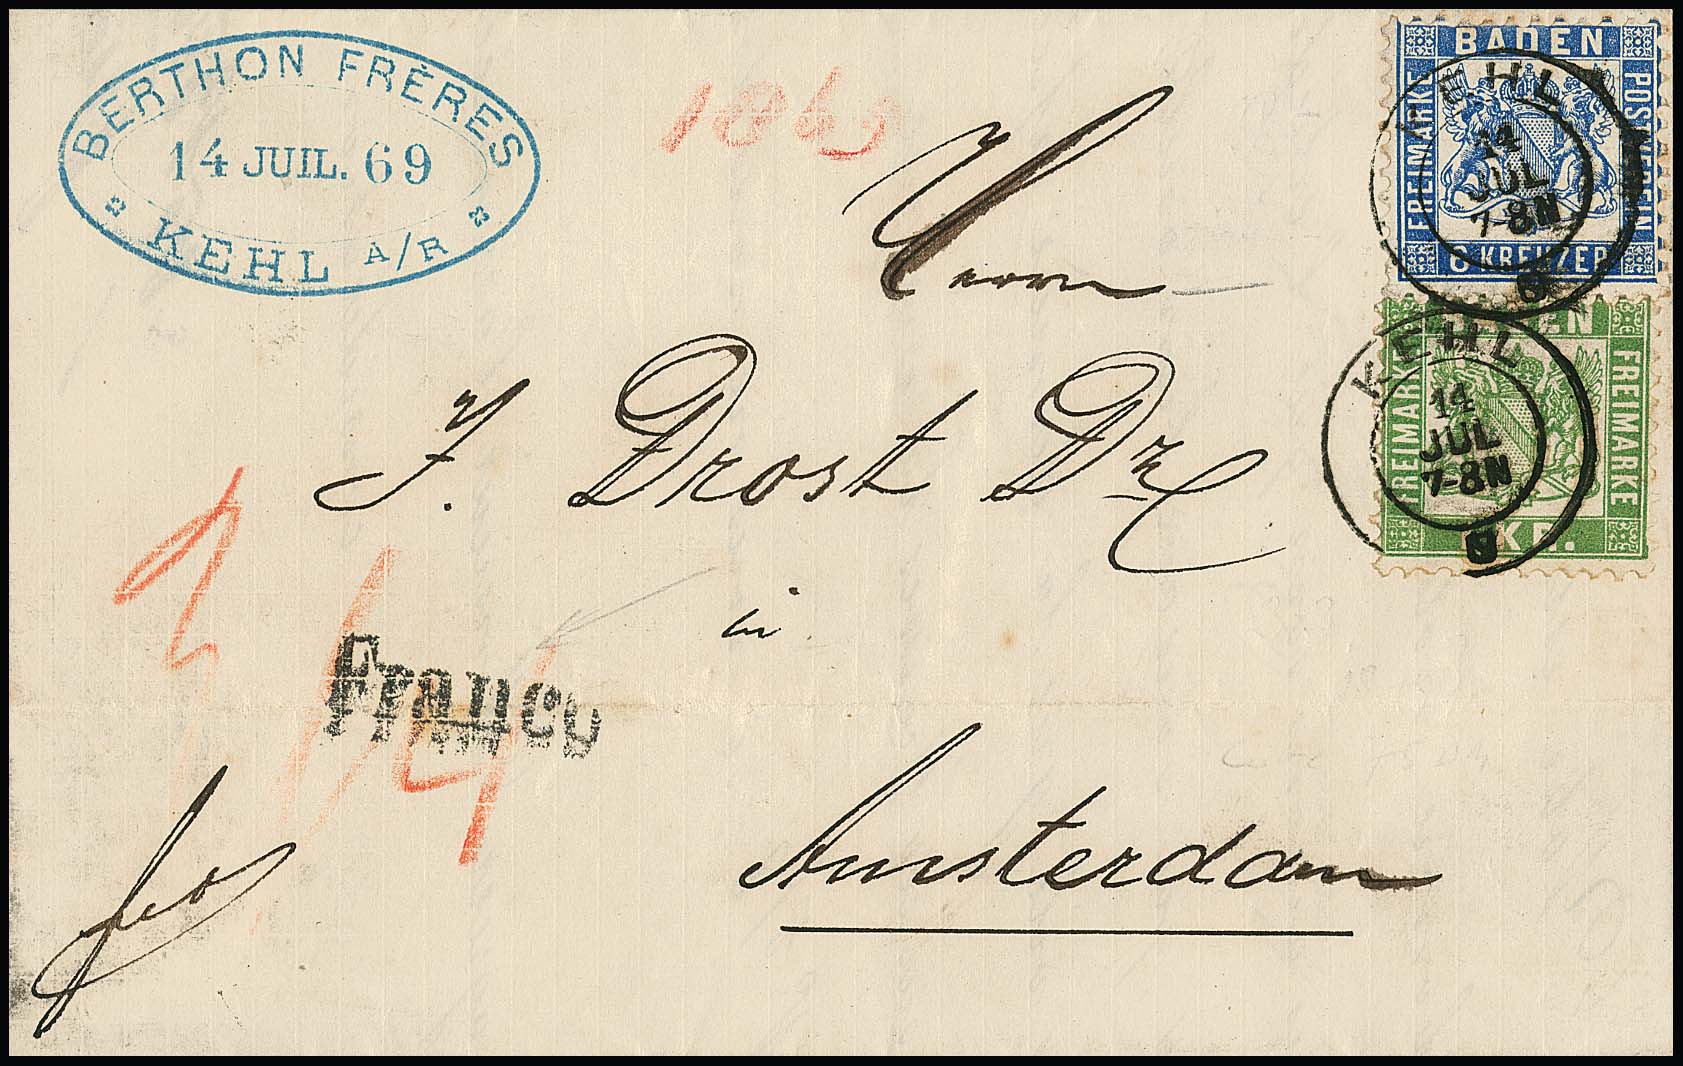 BERTHON FRÈRES
14 JUIL. 69
KEHL A/R
1869
BADEN
FREIMARKE
POSTVEREIN
6 KREUZER
KEHL
14
JUL
7-8N
Herrn
J. Drost Dz
in
Amsterdam
BADEN
FREIMARKE
FREIMARKE
KR.
KEHL
14
JUL
7-8N
Franco
fco